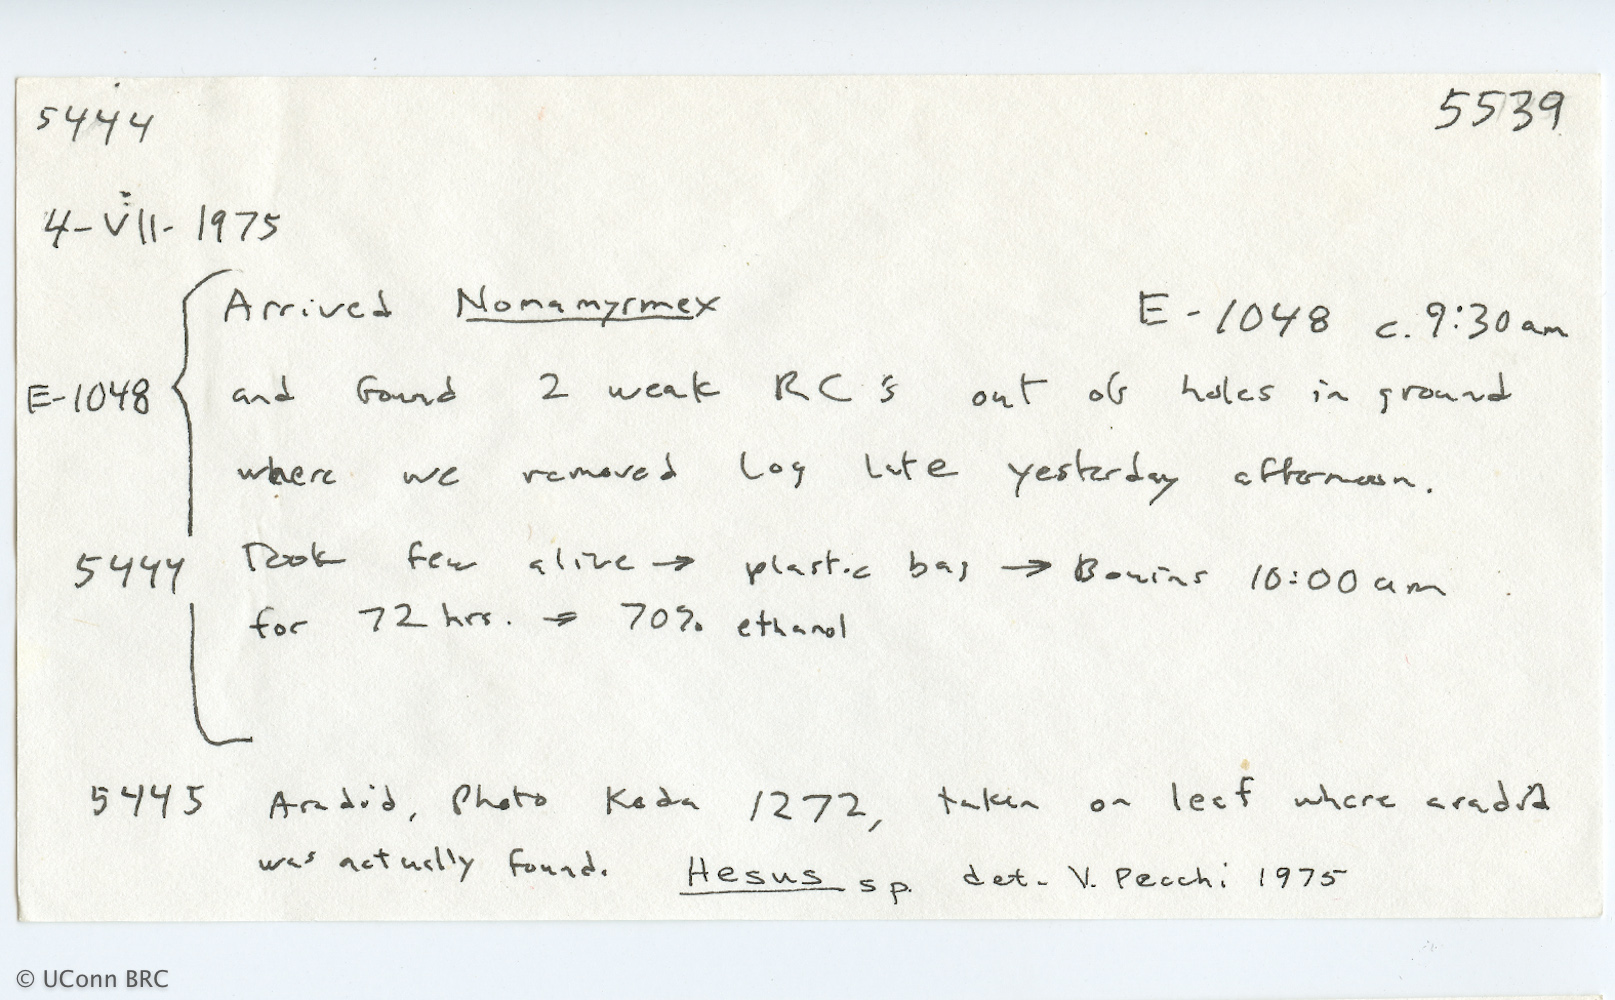 5444 5539
4-VII-1975
Arrived Nomamyrmex E-1048 c. 9:30 am
E-1048 and found 2 weak RC's out of holes in ground
where we removed log late yesterday afternoon.
5444 Took few alive → plastic bag → Bouins 10:00 am
for 72 hrs. → 70% ethanol
5445 Aradid, Photo Koda 1272, taken on leaf where aradid
was actually found. Hesus sp. det. V. Pecchi 1975
© UConn BRC